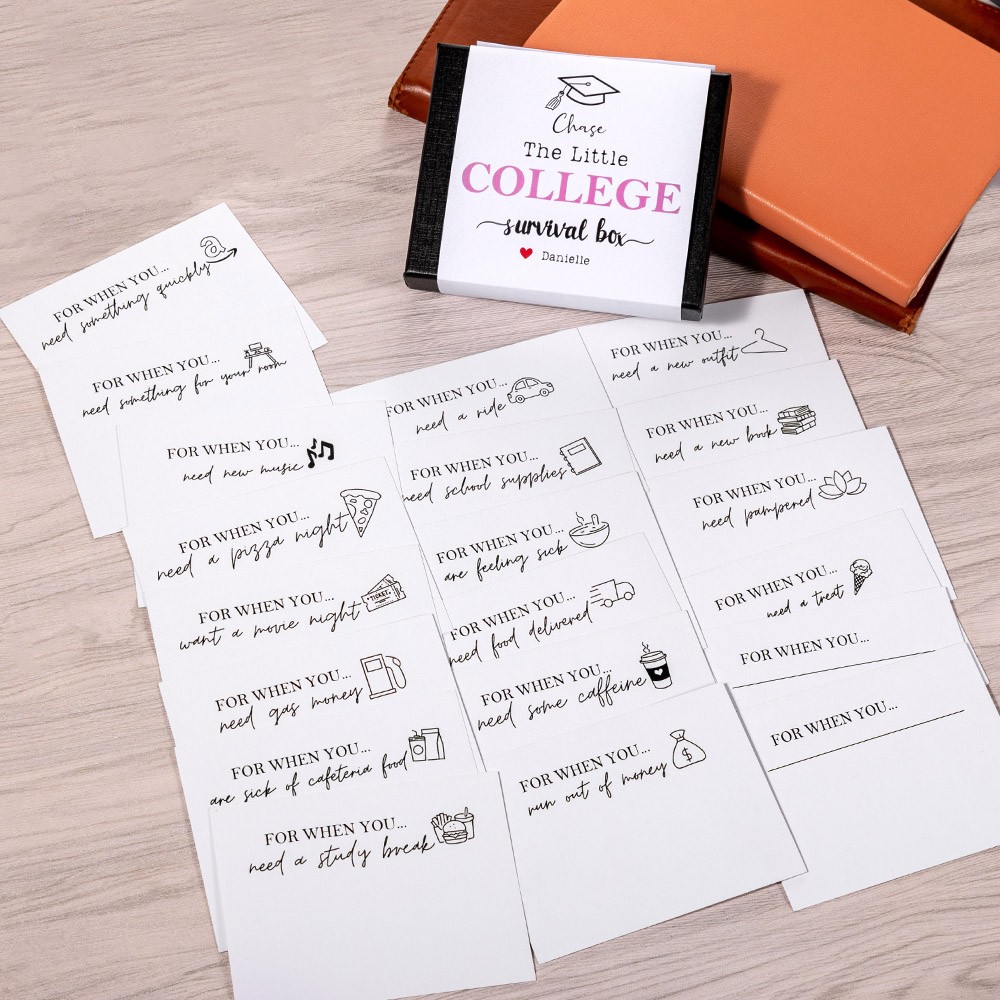 Chase
The Little
COLLEGE
survival box
Danielle
FOR WHEN YOU...
need something quickly
a
FOR WHEN YOU...
need something for your room
FOR WHEN YOU...
need new music
FOR WHEN YOU...
need a pizza night
FOR WHEN YOU...
want a movie night
TICKET
FOR WHEN YOU...
need gas money
FOR WHEN YOU...
are sick of cafeteria food
FOR WHEN YOU...
need a study break
FOR WHEN YOU...
need a ride
FOR WHEN YOU...
need school supplies
FOR WHEN YOU...
are feeling sick
FOR WHEN YOU...
need food delivered
FOR WHEN YOU...
need some caffeine
FOR WHEN YOU...
run out of money
$
FOR WHEN YOU...
need a new outfit
FOR WHEN YOU...
need a new book
FOR WHEN YOU...
need pampered
FOR WHEN YOU...
need a treat
FOR WHEN YOU...
FOR WHEN YOU...